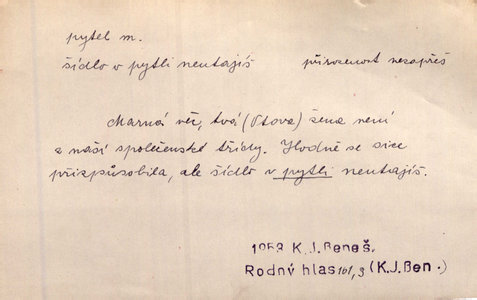 pytel m.
šídlo v pytli neutajíš přirozenost nezapřeš
Marná věc, tvá (Otova) žena není
z naší společenské třídy. Hodně se sice
přizpůsobila, ale šídlo v pytli neutajíš.
1958 K.J.Beneš.
Rodný hlas 161,3 (K.J.Ben.)